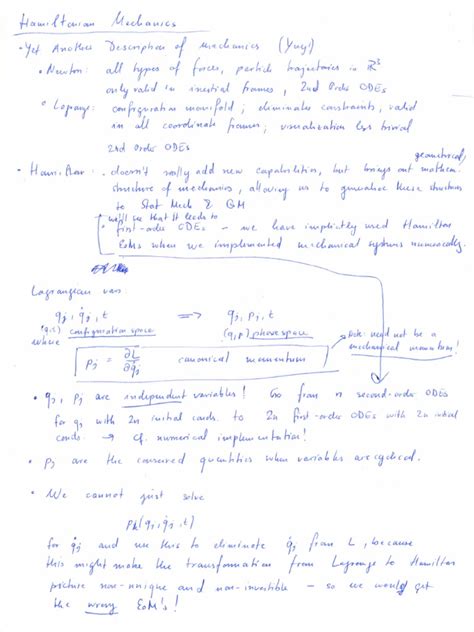 Hamiltonian Mechanics
• Yet Another Description of mechanics (Yay!)
• Newton: all types of forces, particle trajectories in R³
only valid in inertial frames, 2nd Order ODEs
• Lagrange: configuration manifold; eliminates constraints, valid
in all coordinate frames; visualization less trivial
2nd Order ODEs
• Hamilton: doesn't really add new capabilities, but brings out mathem.
geometrical,
structure of mechanics, allowing us to generalize these structures
to Stat Mech & QM
we'll see that it leads to
• first-order ODEs – we have implicitly used Hamilton
EoMs when we implemented mechanical systems numerically.
Lagrangean vars
qj, q̇j, t ⟹ qj, pj, t
(q, q̇) configuration space (q, p) phase space
where
pj = ∂L/∂q̇j canonical momentum
need not be a
mechanical momentum!
• qj, pj are independent variables! Go from n second-order ODEs
for qs with 2n initial conds. to 2n first-order ODEs with 2n initial
conds. → cf. numerical implementation!
• pj are the conserved quantities when variables are cyclical.
• We cannot just solve
pk(qj, q̇j, t)
for q̇j and use this to eliminate q̇j from L, because
this might make the transformation from Lagrange to Hamilton
picture non-unique and non-invertible – so we would get
the wrong EoM's!